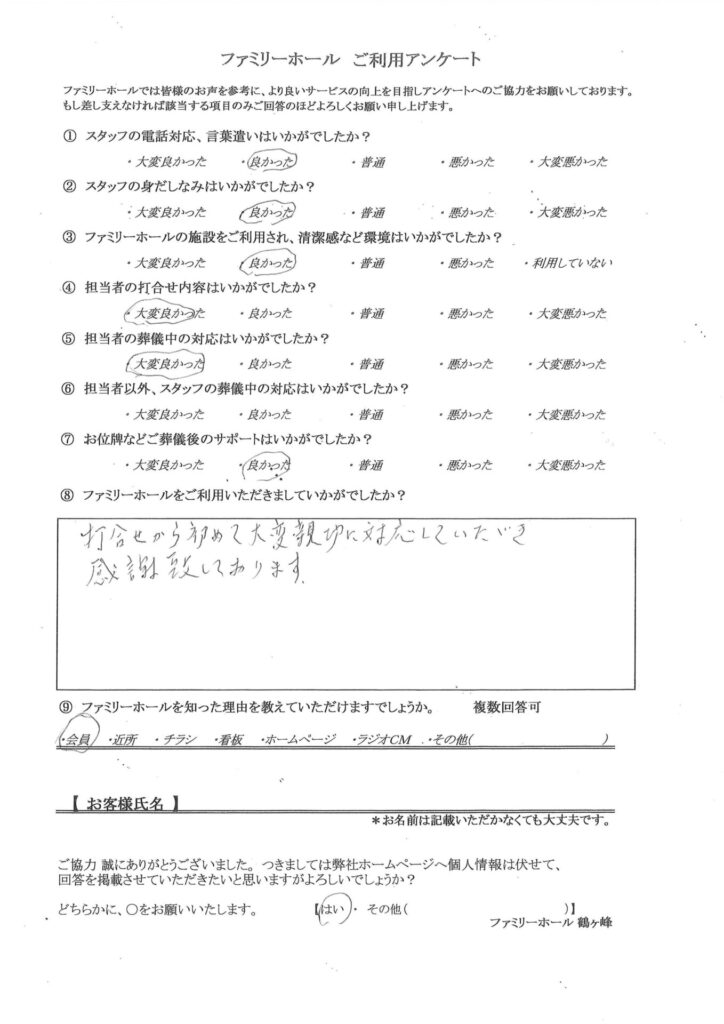 ファミリーホール ご利用アンケート
ファミリーホールでは皆様のお声を参考に、より良いサービスの向上を目指しアンケートへのご協力をお願いしております。
もし差し支えなければ該当する項目のみご回答のほどよろしくお願い申し上げます。
① スタッフの電話対応、言葉遣いはいかがでしたか？
・大変良かった ・良かった ・普通 ・悪かった ・大変悪かった
② スタッフの身だしなみはいかがでしたか？
・大変良かった ・良かった ・普通 ・悪かった ・大変悪かった
③ ファミリーホールの施設をご利用され、清潔感など環境はいかがでしたか？
・大変良かった ・良かった ・普通 ・悪かった ・利用していない
④ 担当者の打合せ内容はいかがでしたか？
・大変良かった ・良かった ・普通 ・悪かった ・大変悪かった
⑤ 担当者の葬儀中の対応はいかがでしたか？
・大変良かった ・良かった ・普通 ・悪かった ・大変悪かった
⑥ 担当者以外、スタッフの葬儀中の対応はいかがでしたか？
・大変良かった ・良かった ・普通 ・悪かった ・大変悪かった
⑦ お位牌などご葬儀後のサポートはいかがでしたか？
・大変良かった ・良かった ・普通 ・悪かった ・大変悪かった
⑧ ファミリーホールをご利用いただきましていかがでしたか？
打合せから初めて大変親切に対応していただき
感謝致しております
⑨ ファミリーホールを知った理由を教えていただけますでしょうか。 複数回答可
・会員 ・近所 ・チラシ ・看板 ・ホームページ ・ラジオCM ・その他( )
【 お客様氏名 】
＊お名前は記載いただかなくても大丈夫です。
ご協力 誠にありがとうございました。つきましては弊社ホームページへ個人情報は伏せて、
回答を掲載させていただきたいと思いますがよろしいでしょうか？
どちらかに、〇をお願いいたします。 【はい ・ その他( )】
ファミリーホール 鶴ヶ峰